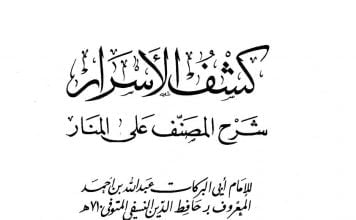 كشف الأسرار
شرح المصنف على المنار
للإمام أبي البركات عبدالله بن أحمد
المعروف بحافظ الدين النسفي المتوفى ٧١٠هـ